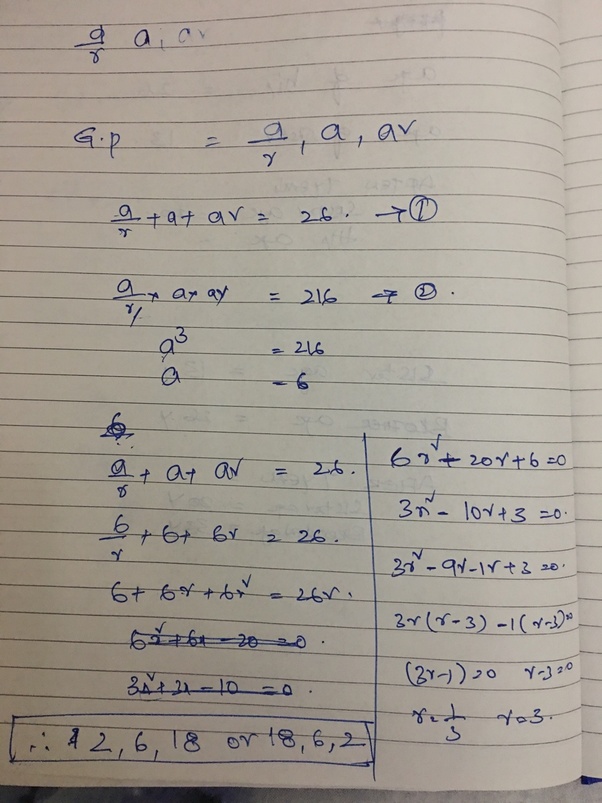 a/r a, ar
G.p = a/r, a, ar
a/r + a + ar = 26. → ①
a/r × a × ar = 216 → ②.
a³ = 216
a = 6
6
a/r + a + ar = 26.
6/r + 6 + 6r = 26.
6 + 6r + 6r² = 26r.
6r² + 6r - 20 = 0.
3r² + 3r - 10 = 0.
∴ 2, 6, 18 or 18, 6, 2
6r² - 20r + 6 = 0
3r² - 10r + 3 = 0.
3r² - 9r - 1r + 3 = 0.
3r(r-3) -1(r-3)=0
(3r-1) = 0 r-3=0
r = 1/3 r=3.